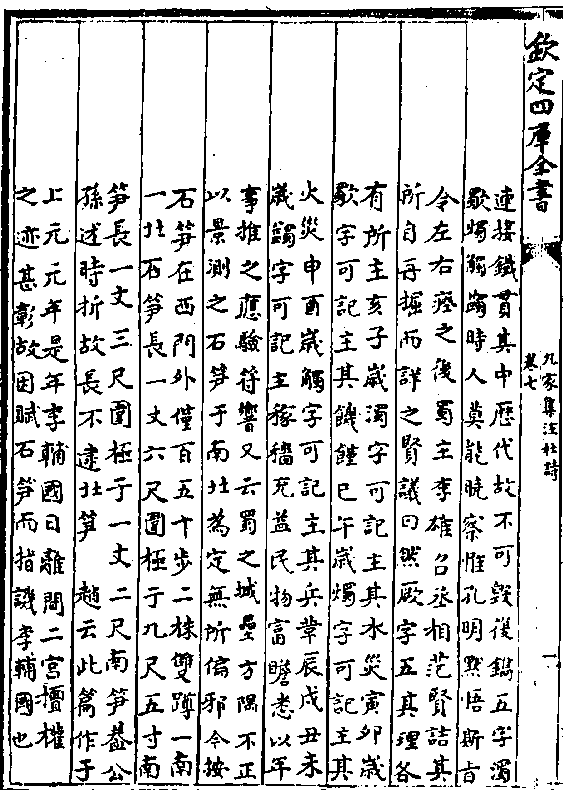 欽定四庫全書
九家集注杜詩
卷七
一
連接鐵貫其中歷代故不可毀後鐫五字濁
歜燭觸蠲時人莫能曉察惟孔明黙悟斯旨
令左右瘞之後蜀主李雄召丞相范賢詰其
所自再掘而詳之賢議曰然厥字五其理各
有所主亥子歲濁字可記主其水災寅卯歲
歜字可記主其饑饉巳午歲燭字可記主其
火災申酉歲觸字可記主其兵革辰戌丑未
歲蠲字可記主稼穡充益民物富贍悉以年
事推之應驗符響又云蜀之城壘方隅不正
以景測之石笋于南北為定無所偏邪今按
石笋在西門外僅百五十步二株雙蹲一南
一北石笋長一丈六尺圍極于九尺五寸南
笋長一丈三尺圍極于一丈二尺南笋蓋公
孫述時折故長不逮北笋　趙云此篇作于
上元元年是年李輔國日離間二宮擅權
之迹甚彰故因賦石笋而指譏李輔國也